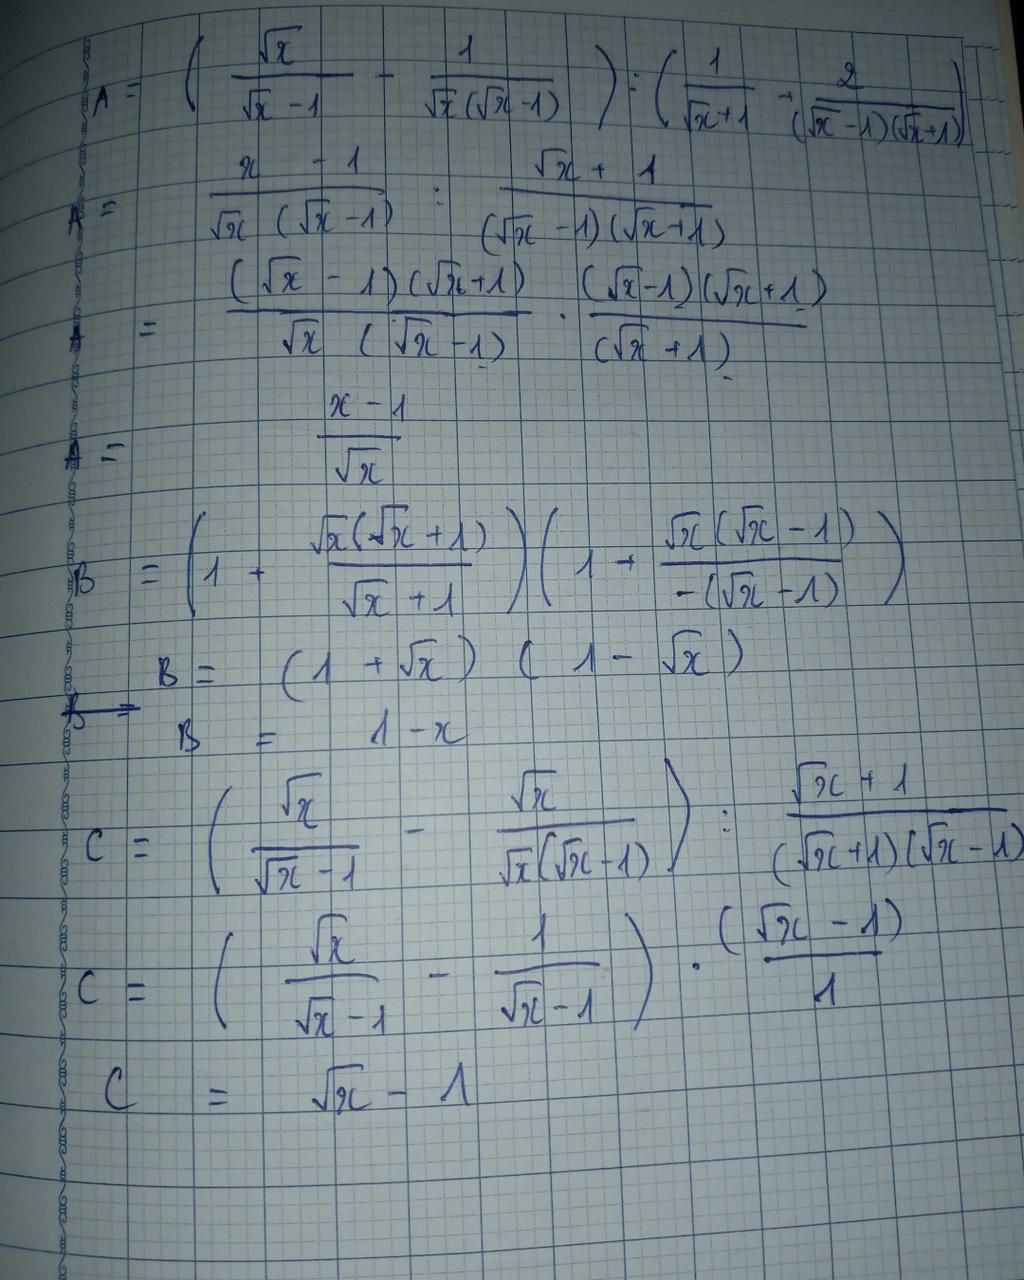 A = ( √x / (√x - 1) - 1 / (√x (√x - 1)) ) : ( 1 / (√x + 1) + 2 / ((√x - 1)(√x + 1)) )
A = (x - 1) / (√x (√x - 1)) : (√x + 1) / ((√x - 1)(√x + 1))
A = ((√x - 1)(√x + 1)) / (√x (√x - 1)) . ((√x - 1)(√x + 1)) / (√x + 1)
A = (x - 1) / √x
B = ( 1 + √x (√x + 1) / (√x + 1) ) ( 1 + √x (√x - 1) / -(√x - 1) )
B = (1 + √x) (1 - √x)
B =
B = 1 - x
C = ( √x / (√x - 1) - √x / (√x (√x - 1)) ) : (√x + 1) / ((√x + 1)(√x - 1))
C = ( √x / (√x - 1) - 1 / (√x - 1) ) . (√x - 1) / 1
C = √x - 1